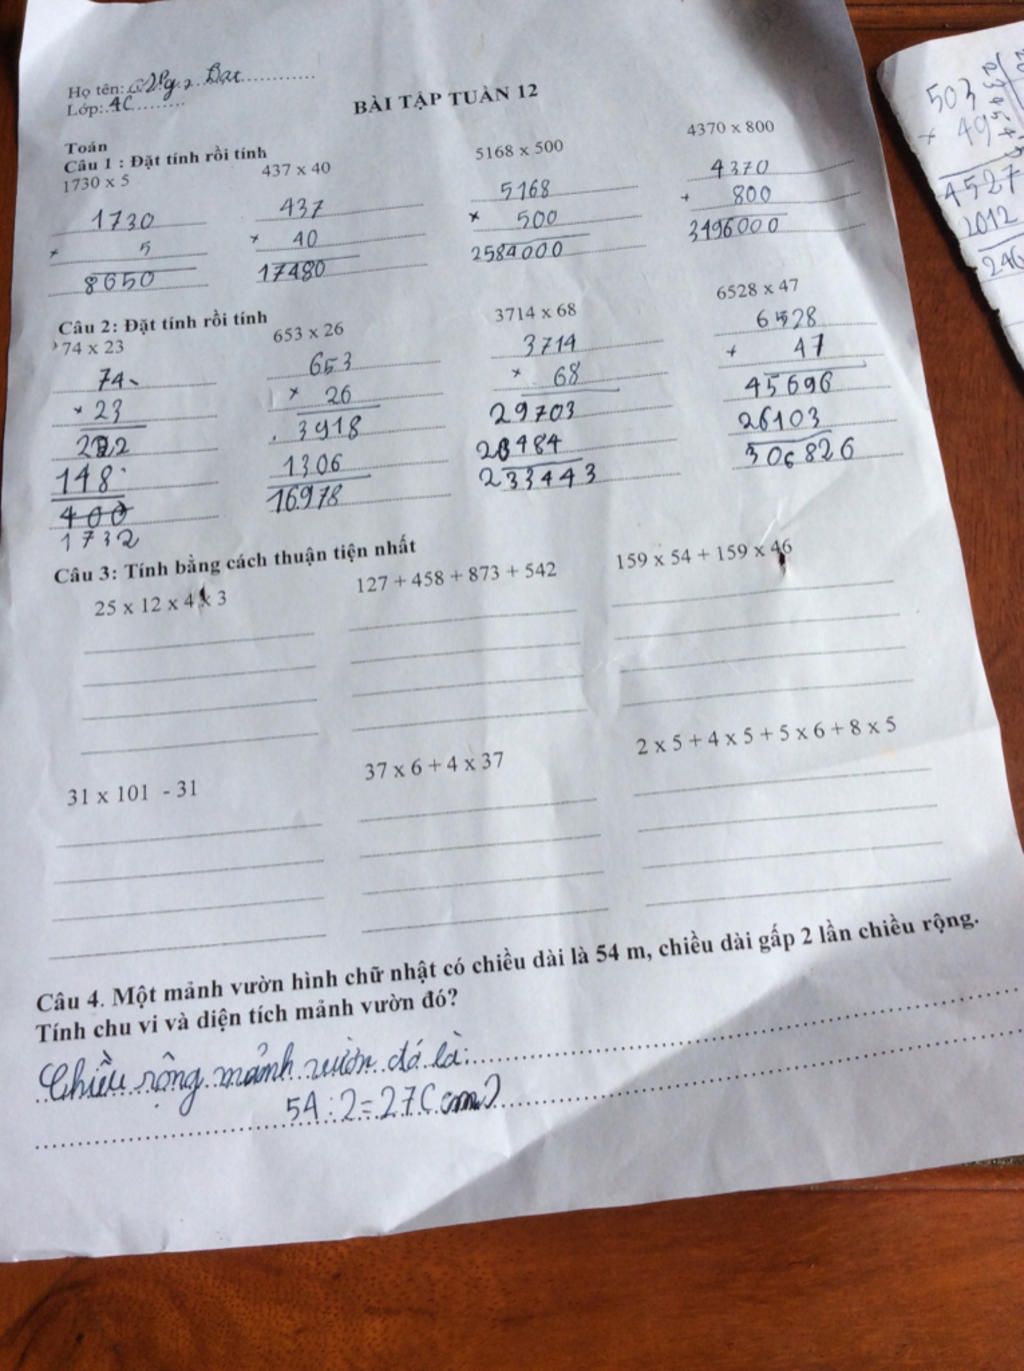 Họ tên:
Lớp: 4C
BÀI TẬP TUẦN 12
Toán
Câu 1 : Đặt tính rồi tính
1730 x 5 437 x 40 5168 x 500 4370 x 800
1730 437 5168 4370
× 5 × 40 × 500 + 800
8650 17480 2584000 3496000
Câu 2: Đặt tính rồi tính
74 x 23 653 x 26 3714 x 68 6528 x 47
74 653 3714 6528
× 23 × 26 × 68 + 47
222 3918 29703 45696
148 1306 26103
400 16978 233443 306826
1732
Câu 3: Tính bằng cách thuận tiện nhất
25 x 12 x 4 x 3 127 + 458 + 873 + 542 159 x 54 + 159 x 46
31 x 101 - 31 37 x 6 + 4 x 37 2 x 5 + 4 x 5 + 5 x 6 + 8 x 5
Câu 4. Một mảnh vườn hình chữ nhật có chiều dài là 54 m, chiều dài gấp 2 lần chiều rộng.
Tính chu vi và diện tích mảnh vườn đó?
Chiều rộng mảnh vườn đó là:
54 : 2 = 27 (m)
503
× 49
4527
2012
246